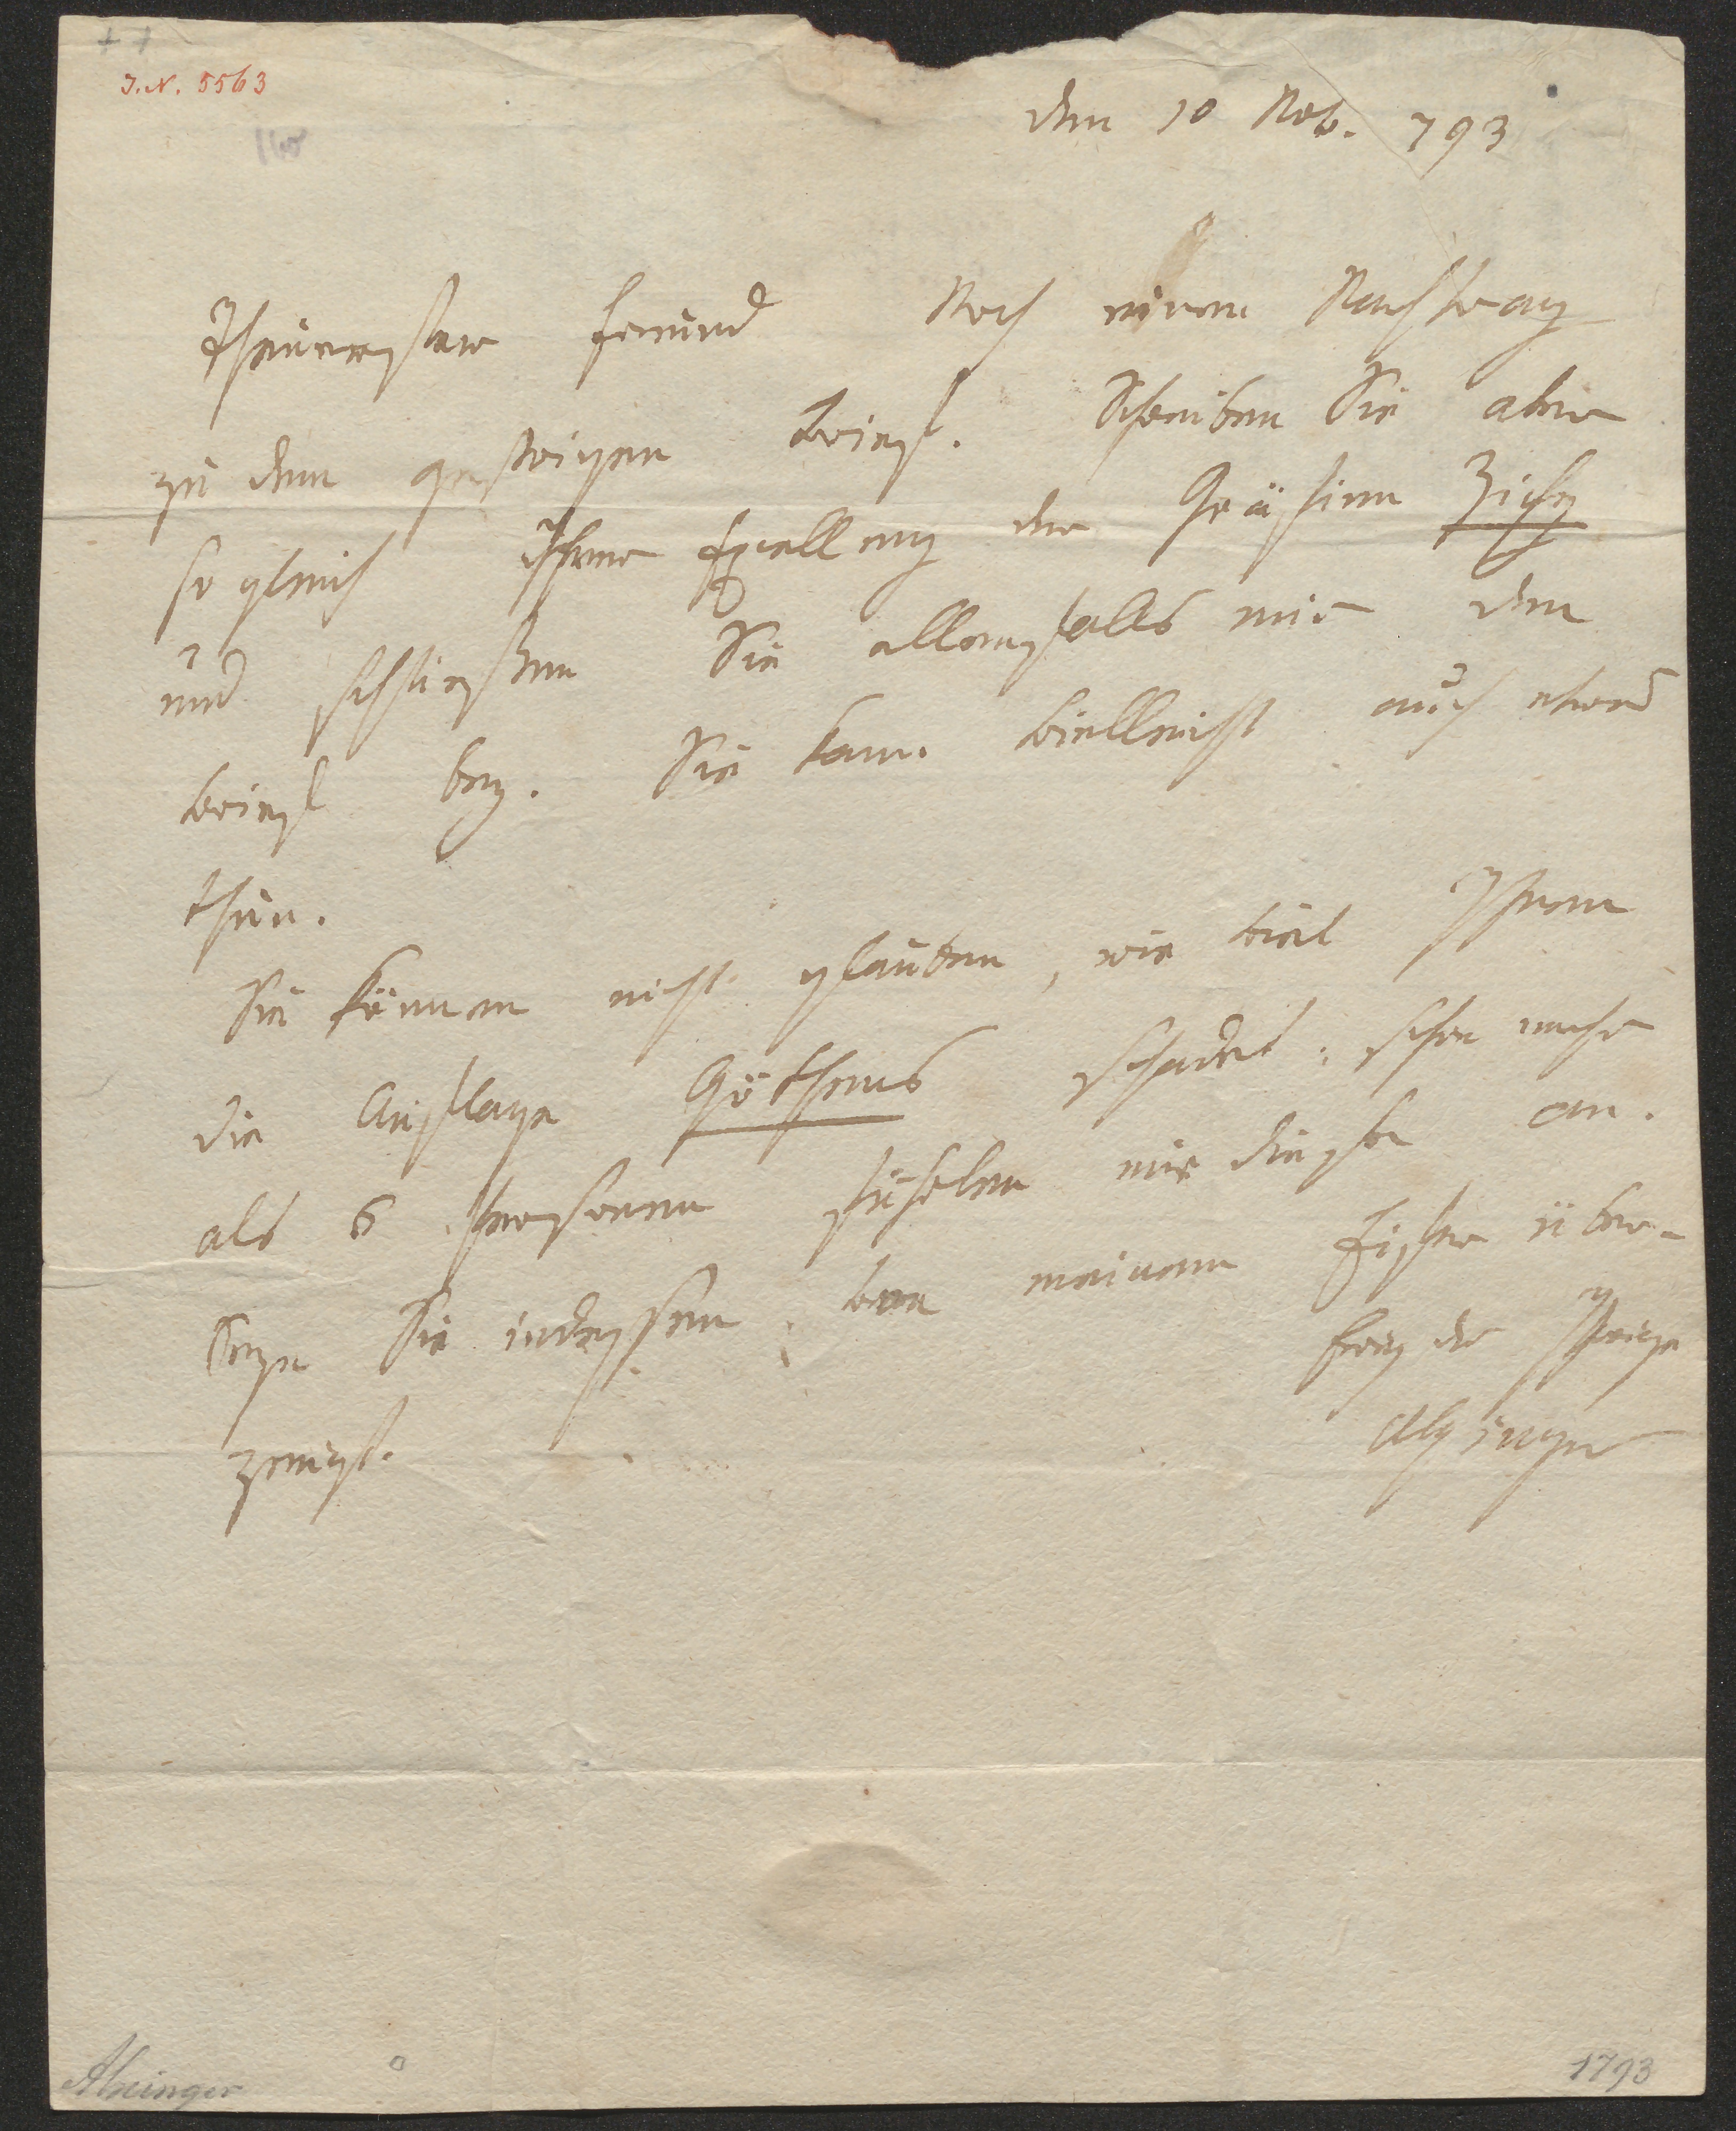 J.N. 5563
160
den 10 Nov. 793
Theuerster Freund Noch einen Nachtrag
zu dem gestrigen Brief. Schreiben Sie aber
so gleich Ihrer Exzellenz der Gräfinn Zichy
und schließen Sie allenfalls mir den
Brief bey. Sie kann vielleicht auch etwas
thun.
Sie können nicht glauben, wie viel Ihnen
die Auflage Göthens schadet; schon mehr
als 6 Personen führten mir dieses an.
Seyn Sie indessen von meinem Eifer über-
zeugt.
Alxinger
Alxinger
1793